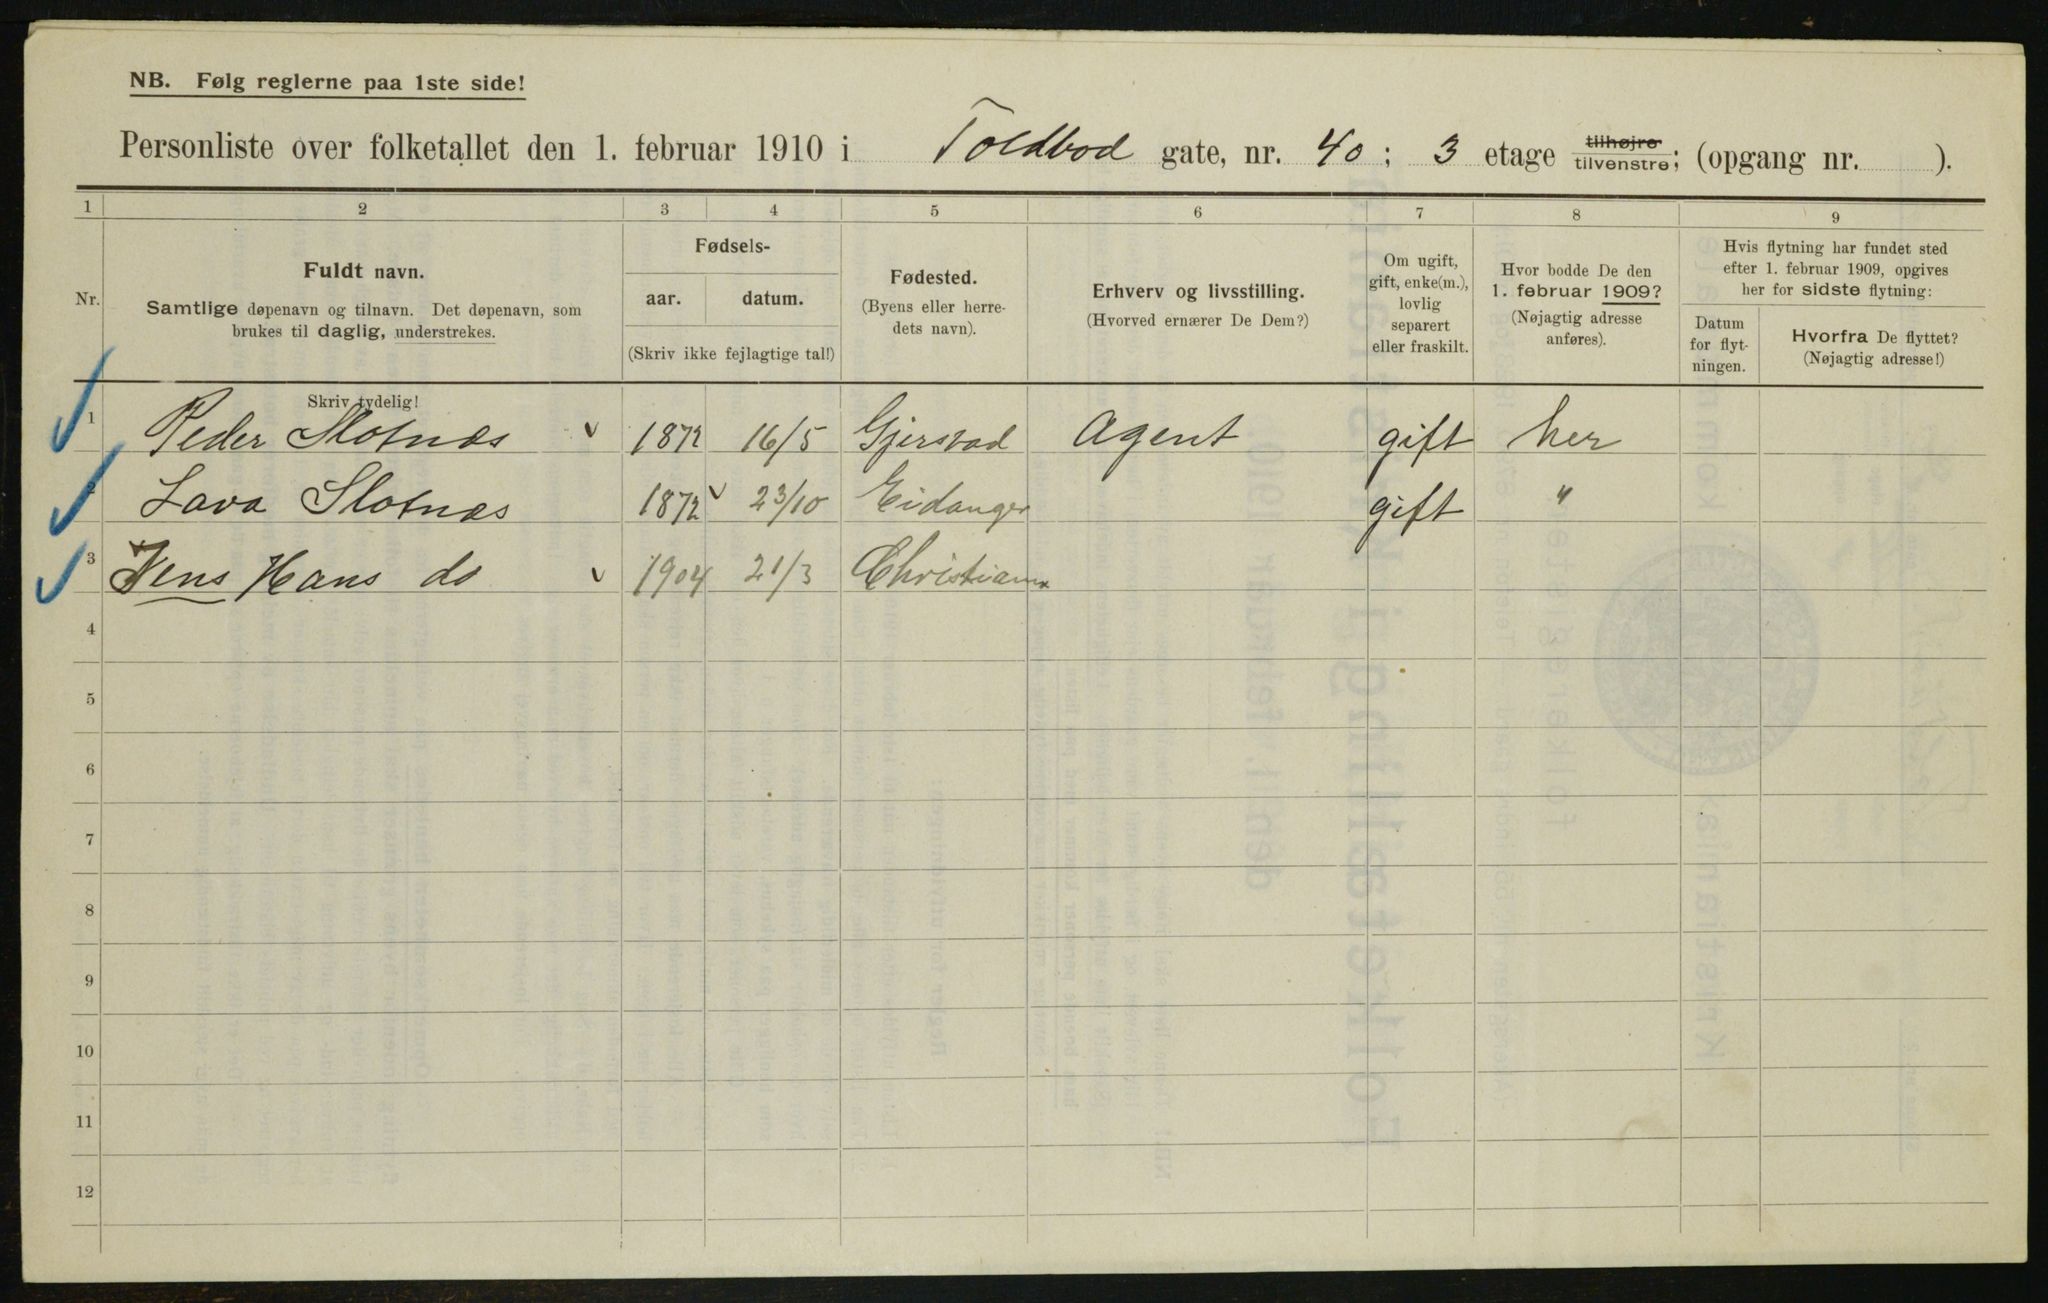 NB. Følg reglerne paa 1ste side!
Personliste over folketallet den 1. februar 1910 i Toldbod gate, nr. 40; 3 etage tilhøjre tilvenstre; (opgang nr. ).
1 2 3 4 5 6 7 8 9
Nr.
Fuldt navn.
Samtlige døpenavn og tilnavn. Det døpenavn, som
brukes til daglig, understrekes.
Skriv tydelig!
Fødsels-
aar. datum.
(Skriv ikke fejlagtige tal!)
Fødested.
(Byens eller herre-
dets navn).
Erhverv og livsstilling.
(Hvorved ernærer De Dem?)
Om ugift,
gift, enke(m.),
lovlig
separert
eller fraskilt.
Hvor bodde De den
1. februar 1909?
(Nøjagtig adresse
anføres).
Hvis flytning har fundet sted
efter 1. februar 1909, opgives
her for sidste flytning:
Datum
for flyt-
ningen.
Hvorfra De flyttet?
(Nøjagtig adresse!)
1 Peder Slotnæs 1872 16/5 Gjerstad Agent gift her
2 Lava Slotnæs 1872 23/10 Eidanger gift "
3 Jens Hans do 1904 21/3 Christiania
4
5
6
7
8
9
10
11
12